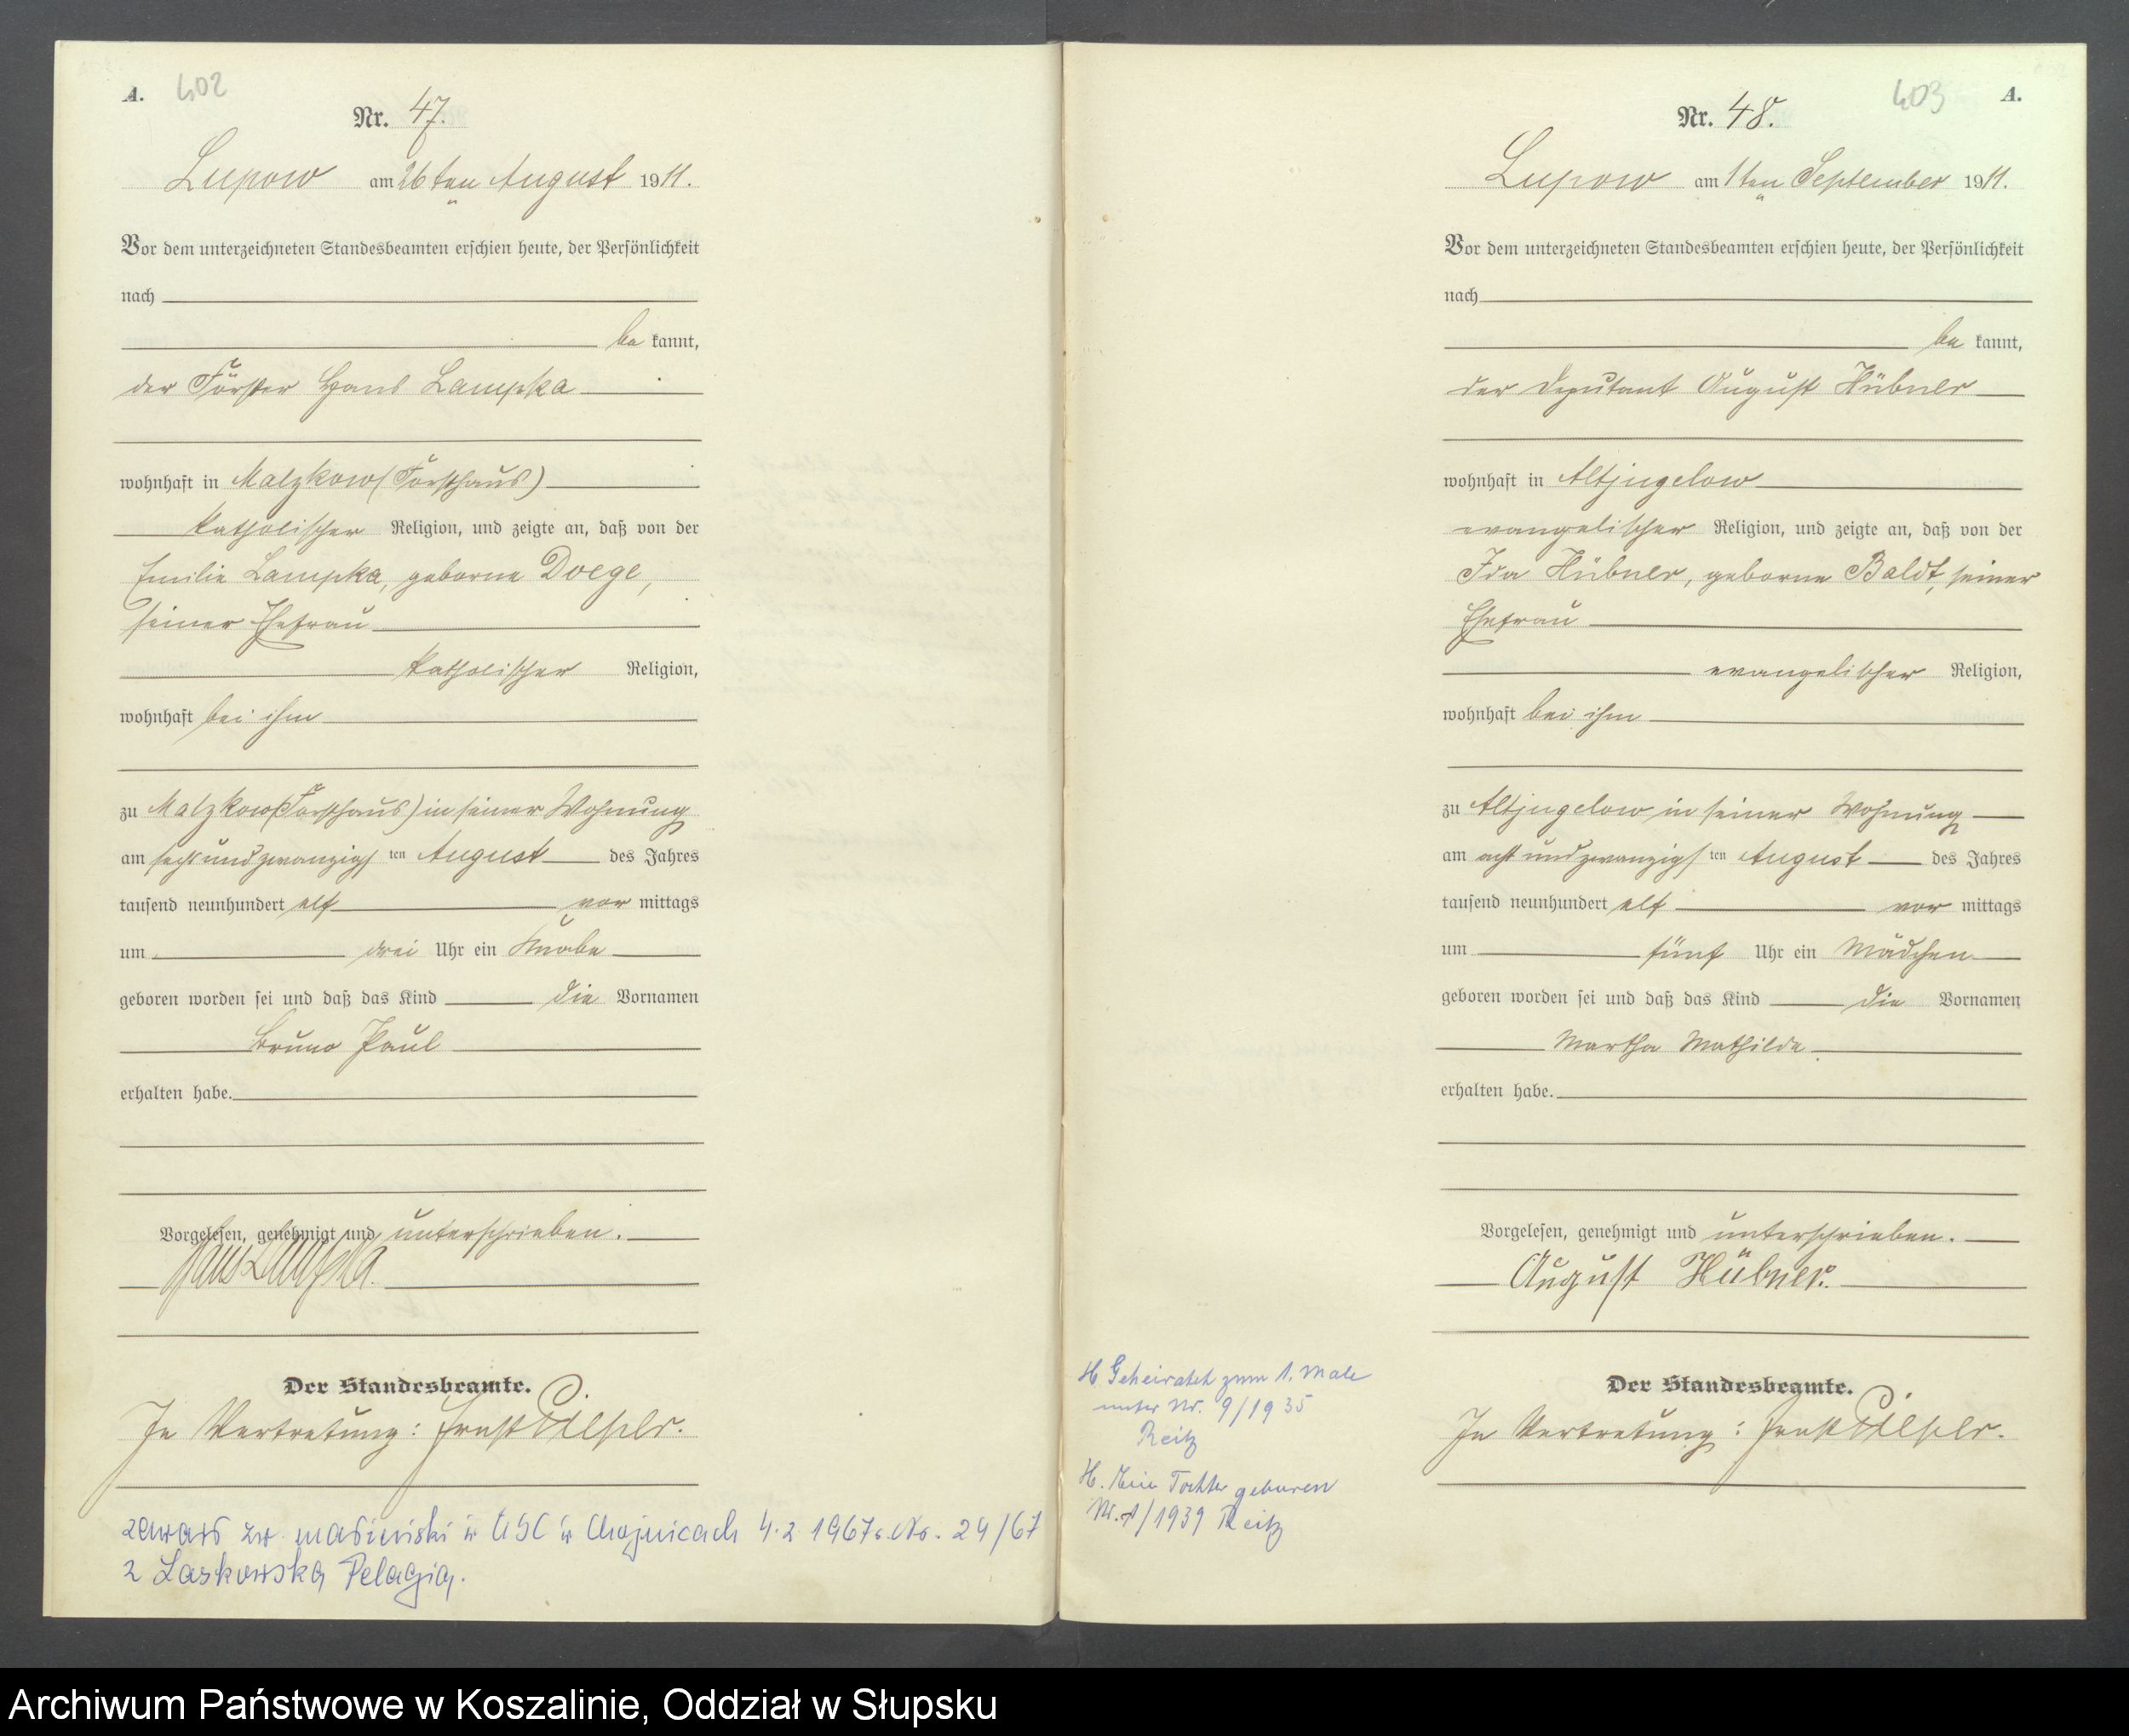 A. 402
Nr. 47.
Lupow am 26ten August 1911.
Vor dem unterzeichneten Standesbeamten erschien heute, der Persönlichkeit
nach
be kannt,
der Förster Hans Lampka
wohnhaft in Malzkow (Forsthaus)
katholischer Religion, und zeigte an, daß von der
Emilie Lampka, geborne Doege,
seiner Ehefrau
katholischer Religion,
wohnhaft bei ihm
zu Malzkow (Forsthaus) in seiner Wohnung
am sechsundzwanzigsten August des Jahres
tausend neunhundert elf vor mittags
um drei Uhr ein Knabe
geboren worden sei und daß das Kind die Vornamen
Bruno Paul
erhalten habe.
Vorgelesen, genehmigt und unterschrieben.
Hans Lampka.
Der Standesbeamte.
In Vertretung: Ernst
zawarł zw. małżeński w USC w Chojnicach 4.2 1967r. Nr. 24/67
z Laskowską Pelagią.
403 A.
Nr. 48.
Lupow am 1ten September 1911.
Vor dem unterzeichneten Standesbeamten erschien heute, der Persönlichkeit
nach
be kannt,
der Deputant August Hübner
wohnhaft in Altjugelow
evangelischer Religion, und zeigte an, daß von der
Ida Hübner, geborne Baldt, seiner
Ehefrau
evangelischer Religion,
wohnhaft bei ihm
zu Altjugelow in seiner Wohnung
am achtundzwanzigsten August des Jahres
tausend neunhundert elf vor mittags
um fünf Uhr ein Mädchen
geboren worden sei und daß das Kind die Vornamen
Martha Mathilde
erhalten habe.
Vorgelesen, genehmigt und unterschrieben.
August Hübner.
Der Standesbeamte.
In Vertretung: Ernst
H. Geheiratet zum 1. Male
unter Nr. 9/1935
Reitz
H. Tochter geboren
Nr. 1/1939 Reitz
Archiwum Państwowe w Koszalinie, Oddział w Słupsku